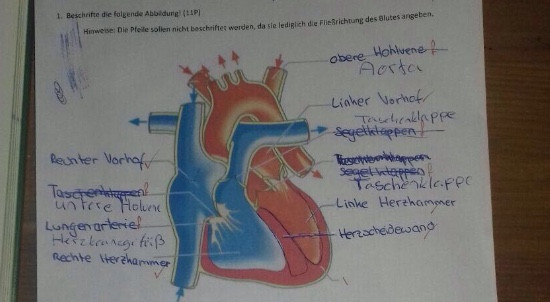 1. Beschrifte die folgende Abbildung! (11P)
Hinweise: Die Pfeile sollen nicht beschriftet werden, da sie lediglich die Fließrichtung des Blutes angeben.
obere Hohlvene f
Aorta
Linker Vorhof
Taschenklappe
Segelklappen f
Taschenklappen
Segelklappen f
Taschenklappe
Linke Herzkammer
Herzscheidewand
Rechter Vorhof
Taschenklappen f
untere Hohlve
Lungenarterie f
Herzkranzgefäß
Rechte Herzkammer